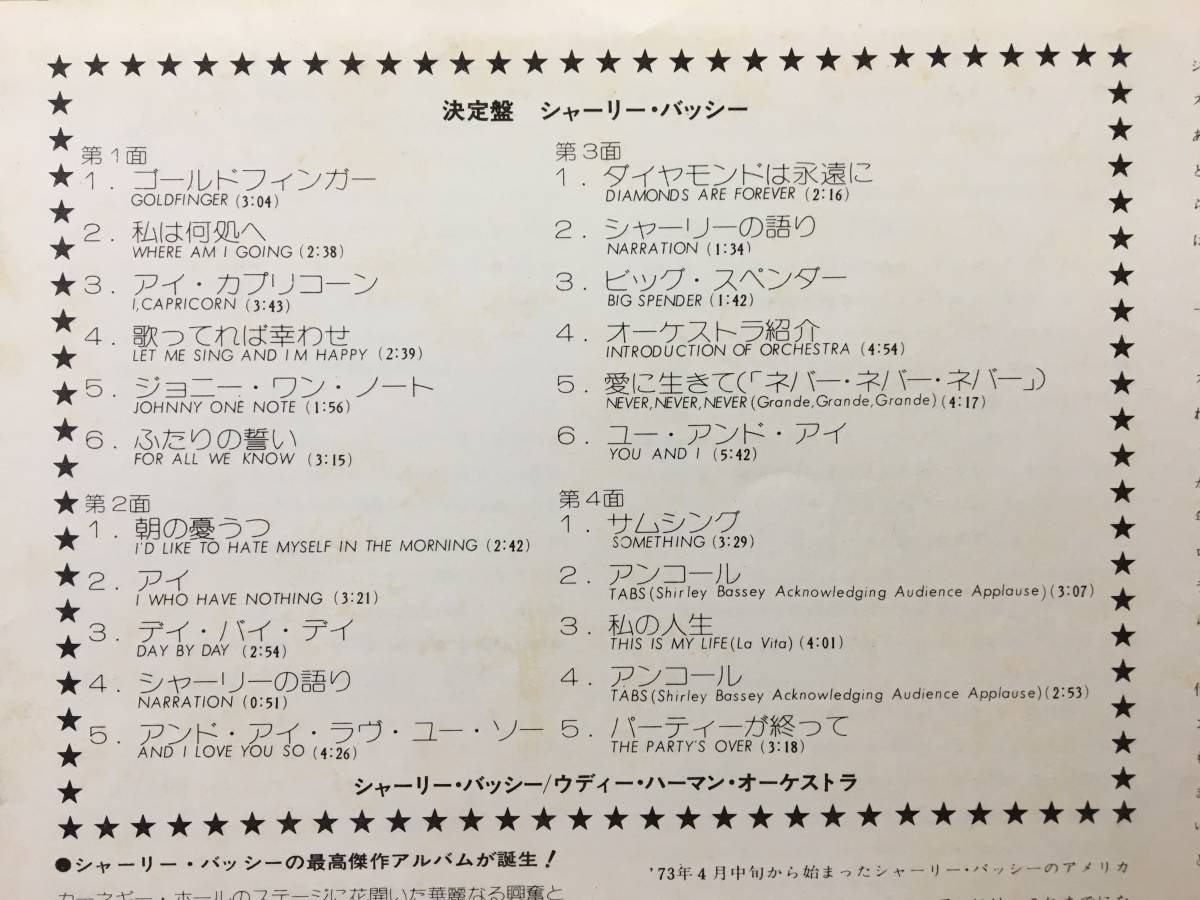 決定盤 シャーリー・バッシー
第1面
1. ゴールドフィンガー
GOLDFINGER (3:04)
2. 私は何処へ
WHERE AM I GOING (2:38)
3. アイ・カプリコーン
I,CAPRICORN (3:43)
4. 歌ってれば幸わせ
LET ME SING AND I M HAPPY (2:39)
5. ジョニー・ワン・ノート
JOHNNY ONE NOTE (1:56)
6. ふたりの誓い
FOR ALL WE KNOW (3:15)
第2面
1. 朝の憂うつ
I'D LIKE TO HATE MYSELF IN THE MORNING (2:42)
2. アイ
I WHO HAVE NOTHING (3:21)
3. デイ・バイ・デイ
DAY BY DAY (2:54)
4. シャーリーの語り
NARRATION (0:51)
5. アンド・アイ・ラヴ・ユー・ソー
AND I LOVE YOU SO (4:26)
第3面
1. ダイヤモンドは永遠に
DIAMONDS ARE FOREVER (2:16)
2. シャーリーの語り
NARRATION (1:34)
3. ビッグ・スペンダー
BIG SPENDER (1:42)
4. オーケストラ紹介
INTRODUCTION OF ORCHESTRA (4:54)
5. 愛に生きて(「ネバー・ネバー・ネバー」)
NEVER, NEVER, NEVER (Grande, Grande, Grande) (4:17)
6. ユー・アンド・アイ
YOU AND I (5:42)
第4面
1. サムシング
SOMETHING (3:29)
2. アンコール
TABS (Shirley Bassey Acknowledging Audience Applause) (3:07)
3. 私の人生
THIS IS MY LIFE (La Vita) (4:01)
4. アンコール
TABS (Shirley Bassey Acknowledging Audience Applause) (2:53)
5. パーティーが終って
THE PARTY'S OVER (3:18)
シャーリー・バッシー/ウディー・ハーマン・オーケストラ
●シャーリー・バッシーの最高傑作アルバムが誕生!
カーネギー・ホールのステージに花開いた華麗なる興奮と
'73年4月中旬から始まったシャーリー・バッシーのアメリカ